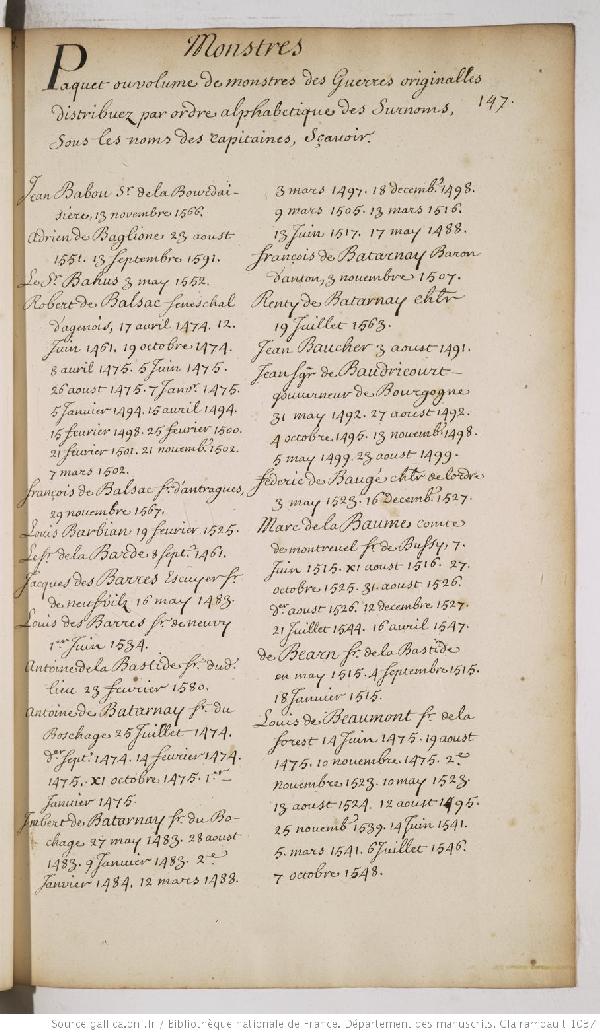 Monstres
Paquet ou volume de monstres des Guerres originalles
distribuez par ordre alphabetique des Surnoms,
147.
Sous les noms des capitaines, Sçavoir.
Jean Babou Sr. de la Bourdai-
siere, 13 novembre 1566.
Adrien de Baglione 23 aoust
1551. 13 septembre 1591.
Le Sr. Bahus 3 may 1552.
Robert de Balsac seneschal
d'agenois, 17 avril 1474. 12.
Juin 1461. 19 octobre 1474.
8 avril 1475. 5 Juin 1475.
26 aoust 1475. 7 Janvr. 1475.
5 Janvier 1494. 15 avril 1494.
15 fevrier 1498. 25 fevrier 1500.
21 fevrier 1501. 21 novembr. 1502.
7 mars 1502.
françois de Balsac sr. d'antragues,
29 novembre 1567.
Louis Barbian 19 fevrier 1525.
Le sr. de la Barde 8 septr. 1461.
Jacques des Barres Escuyer sr.
de neufvilz 16 may 1483.
Louis des Barres sr. de neuvy
1er Juin 1534.
Antoine de la Bastide sr. dud.
lieu 23 fevrier 1580.
Antoine de Batarnay sr. du
Boschage 25 Juillet 1474.
der septr. 1474. 14 fevrier 1474.
1475. XI octobre 1475. 1er
Janvier 1475.
Imbert de Batarnay sr. du Bo-
chage 27 may 1483. 28 aoust
1483. 9 Janvier 1483. 2e
Janvier 1484. 12 mars 1488.
3 mars 1497. 18 decembr. 1498.
9 mars 1505. 13 mars 1516.
13 Juin 1517. 17 may 1488.
françois de Batarnay Baron
d'anton, 3 novembre 1507.
Renty de Batarnay chlr
19 Juillet 1563.
Jean Baucher 3 aoust 1491.
Jean sgr. de Baudricourt
gouverneur de Bourgogne
31 may 1492. 27 aoust 1492.
4 octobre 1495. 13 novembr. 1498.
5 may 1499. 23 aoust 1499.
federic de Baugé chlr de lordre
3 may 1523. 16 decembr. 1527.
Marc de la Baumes comte
de montrevel sr. de Bussy, 7.
Juin 1515. XI aoust 1516. 27.
octobre 1525. 31 aoust 1526.
der aoust 1526. 12 decembre 1527.
21 Juillet 1544. 16 avril 1547.
de Bearn sr. de la Bastide
en may 1515. 4 septembre 1515.
18 Janvier 1515.
Louis de Beaumont sr. de la
forest 14 Juin 1475. 19 aoust
1475. 10 novembre 1475. 2e
novembre 1523. 10 may 1523.
13 aoust 1524. 12 aoust 1495.
25 novembr. 1539. 14 Juin 1541.
5 mars 1541. 6 Juillet 1546.
7 octobre 1548.
Source gallica.bnf.fr / Bibliothèque nationale de France. Département des manuscrits. Clairambault 1037